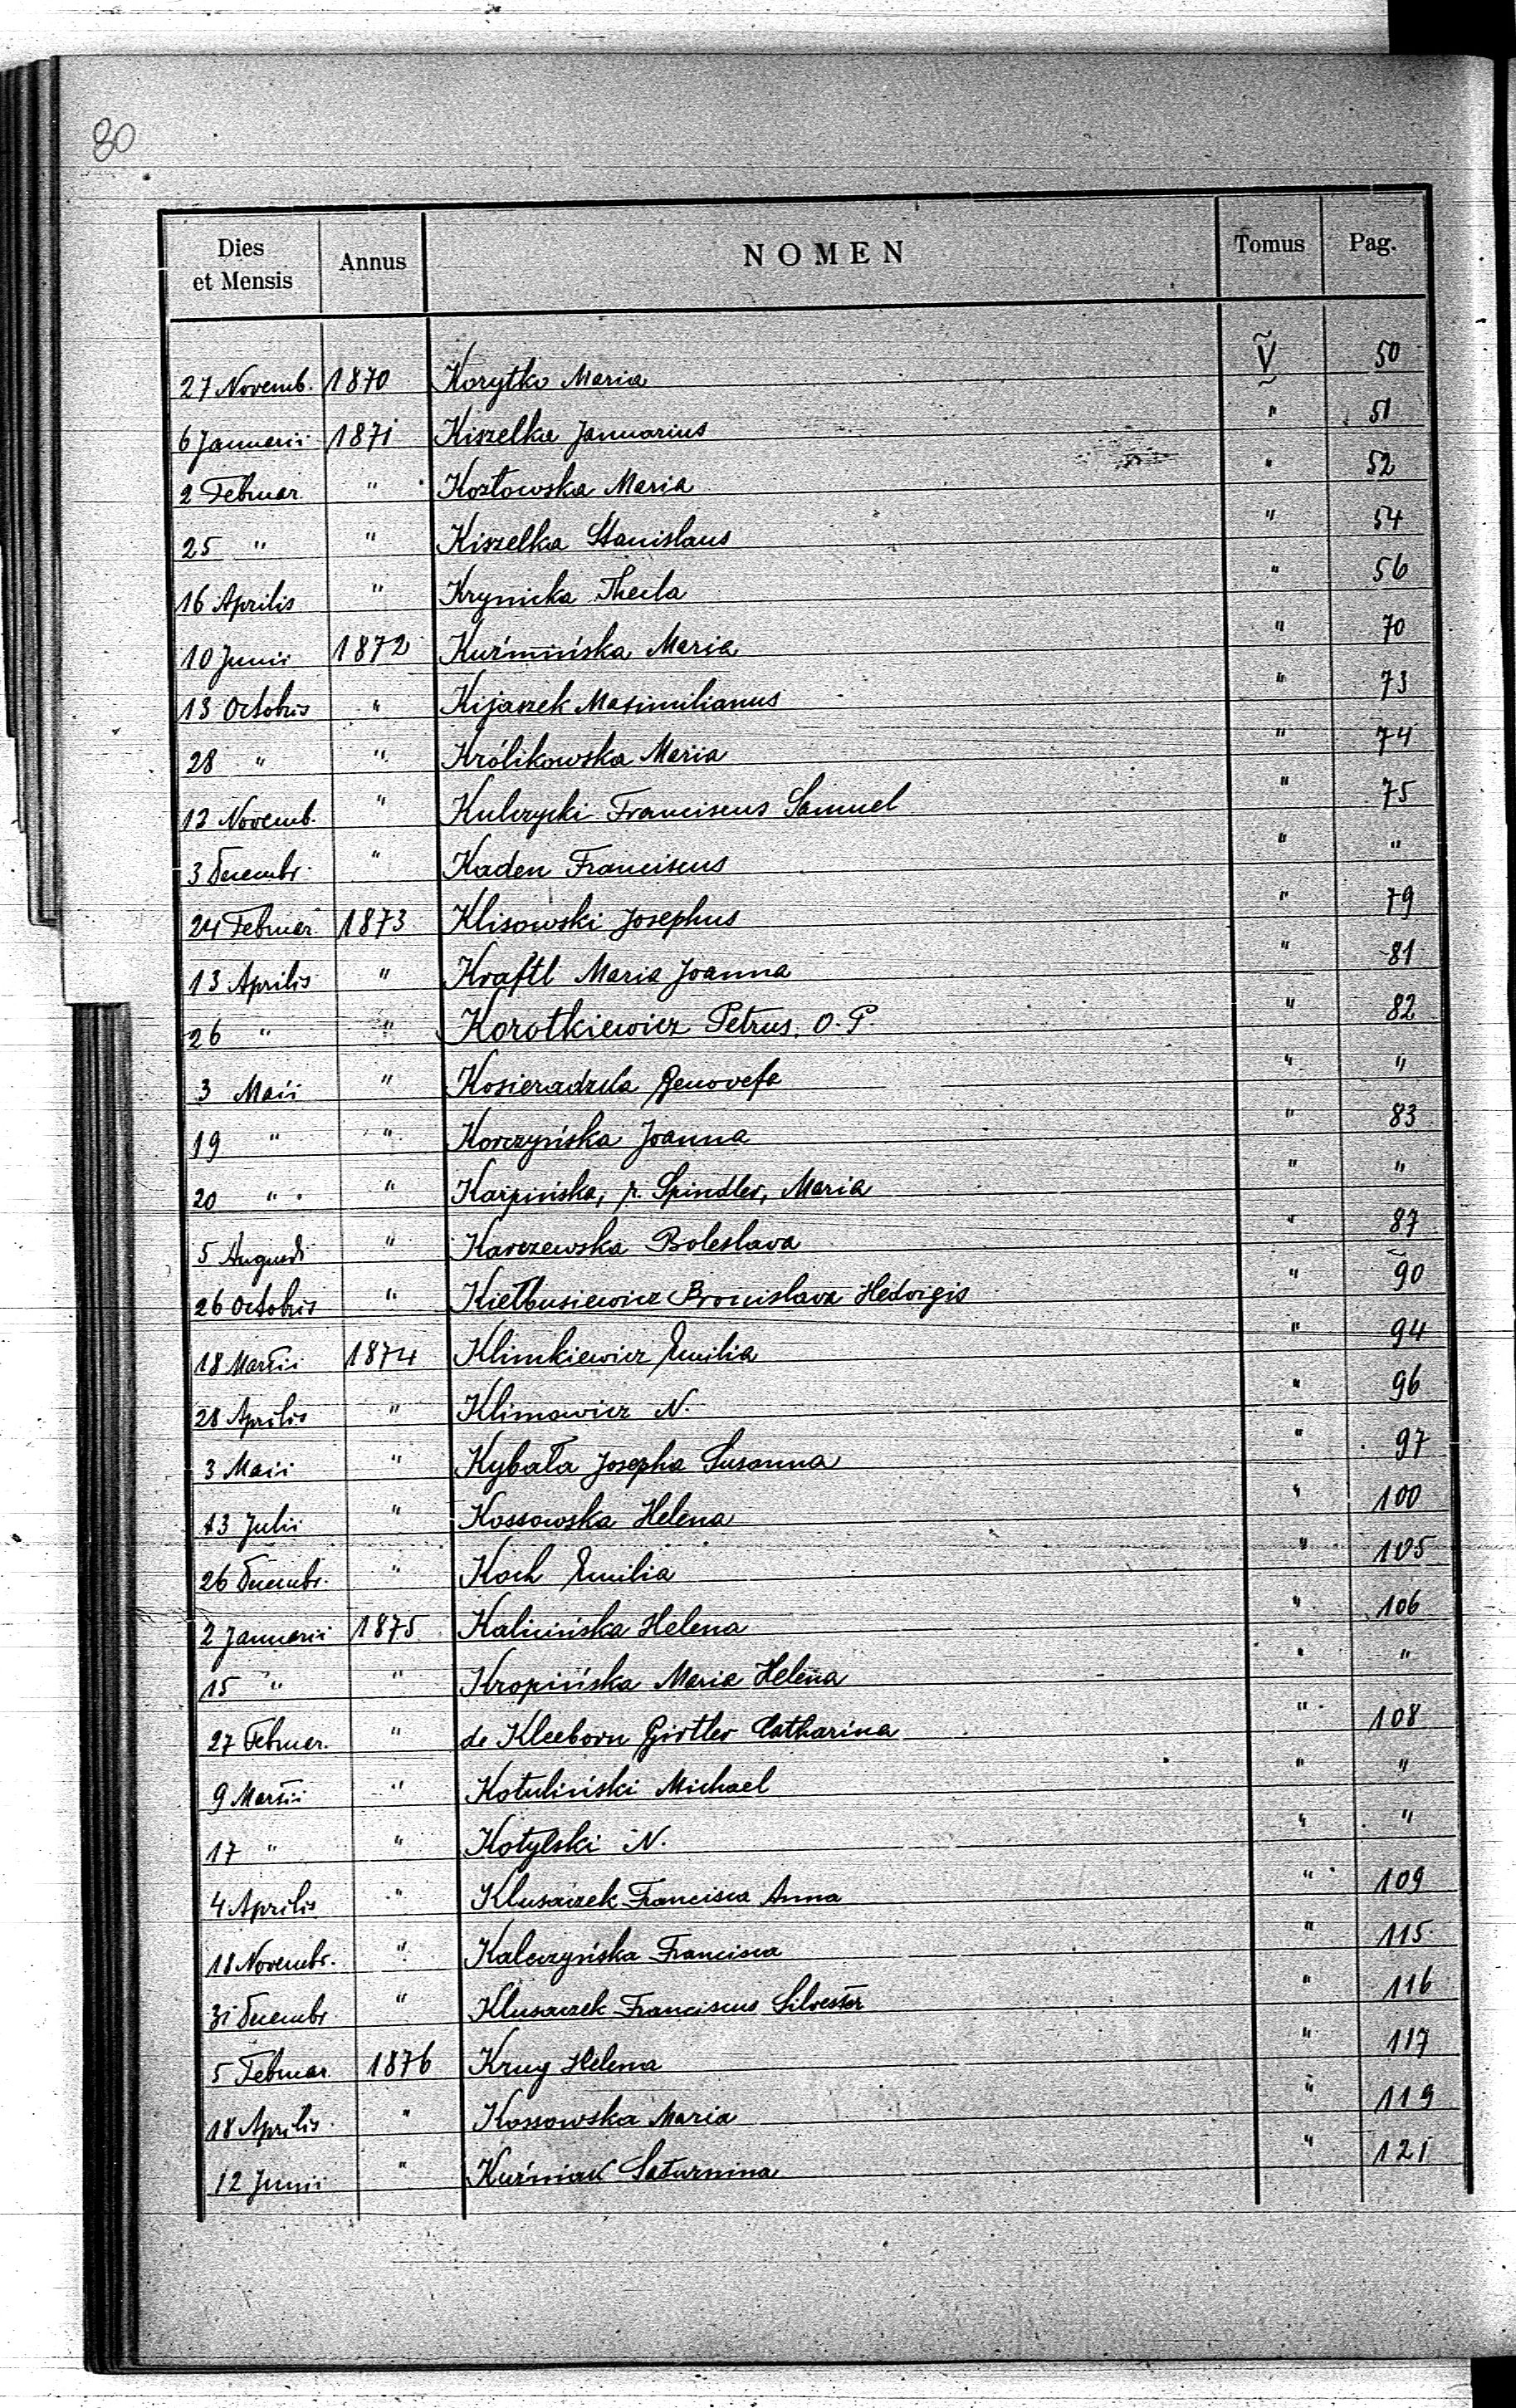 80
Dies et Mensis Annus NOMEN Tomus Pag.
27 Novemb. 1870 Korytko Maria V 50
6 Januarii 1871 Kiszelka Januarius " 51
2 Februar. " Kozłowska Maria " 52
25 " " Kiszelka Stanislaus " 54
16 Aprilis " Krynicka Thecla " 56
10 Junii 1872 Kuźmińska Maria " 70
13 Octobris " Kijaszek Maximilianus " 73
28 " " Królikowska Maria " 74
12 Novemb. " Kulczycki Franciscus Samuel " 75
3 Decembr. " Kaden Franciscus " "
24 Februar. 1873 Klisowski Josephus " 79
13 Aprilis " Kraftl Maria Joanna " 81
26 " " Korotkiewicz Petrus, O. P. " 82
3 Maii " Kosieradzka Genovefa " "
19 " " Korczyńska Joanna " 83
20 " " Karpińska, r. Spindler, Maria " "
5 Augusti " Karczewska Boleslava " 87
26 Octobris " Kiełbusiewicz Bronislava Hedvigis " 90
18 Martii 1874 Klimkiewicz Emilia " 94
28 Aprilis " Klimowicz N. " 96
3 Maii " Kybała Josepha Susanna " 97
13 Julii " Kossowska Helena " 100
26 Decembr. " Koch Emilia " 105
2 Januarii 1875 Kalicińska Helena " 106
15 " " Kropińska Maria Helena " "
27 Februar. " de Kleeborn Girtler Catharina " 108
9 Martii " Kotuliński Michael " "
17 " " Kotylski N. " "
4 Aprilis " Klusaczek Francisca Anna " 109
18 Novembr. " Kalczyńska Francisca " 115
31 Decembr " Klusaczek Franciscus Silvester " 116
5 Februar. 1876 Krug Helena " 117
18 Aprilis " Kossowska Maria " 119
12 Junii " Kuźniak Saturnina " 121